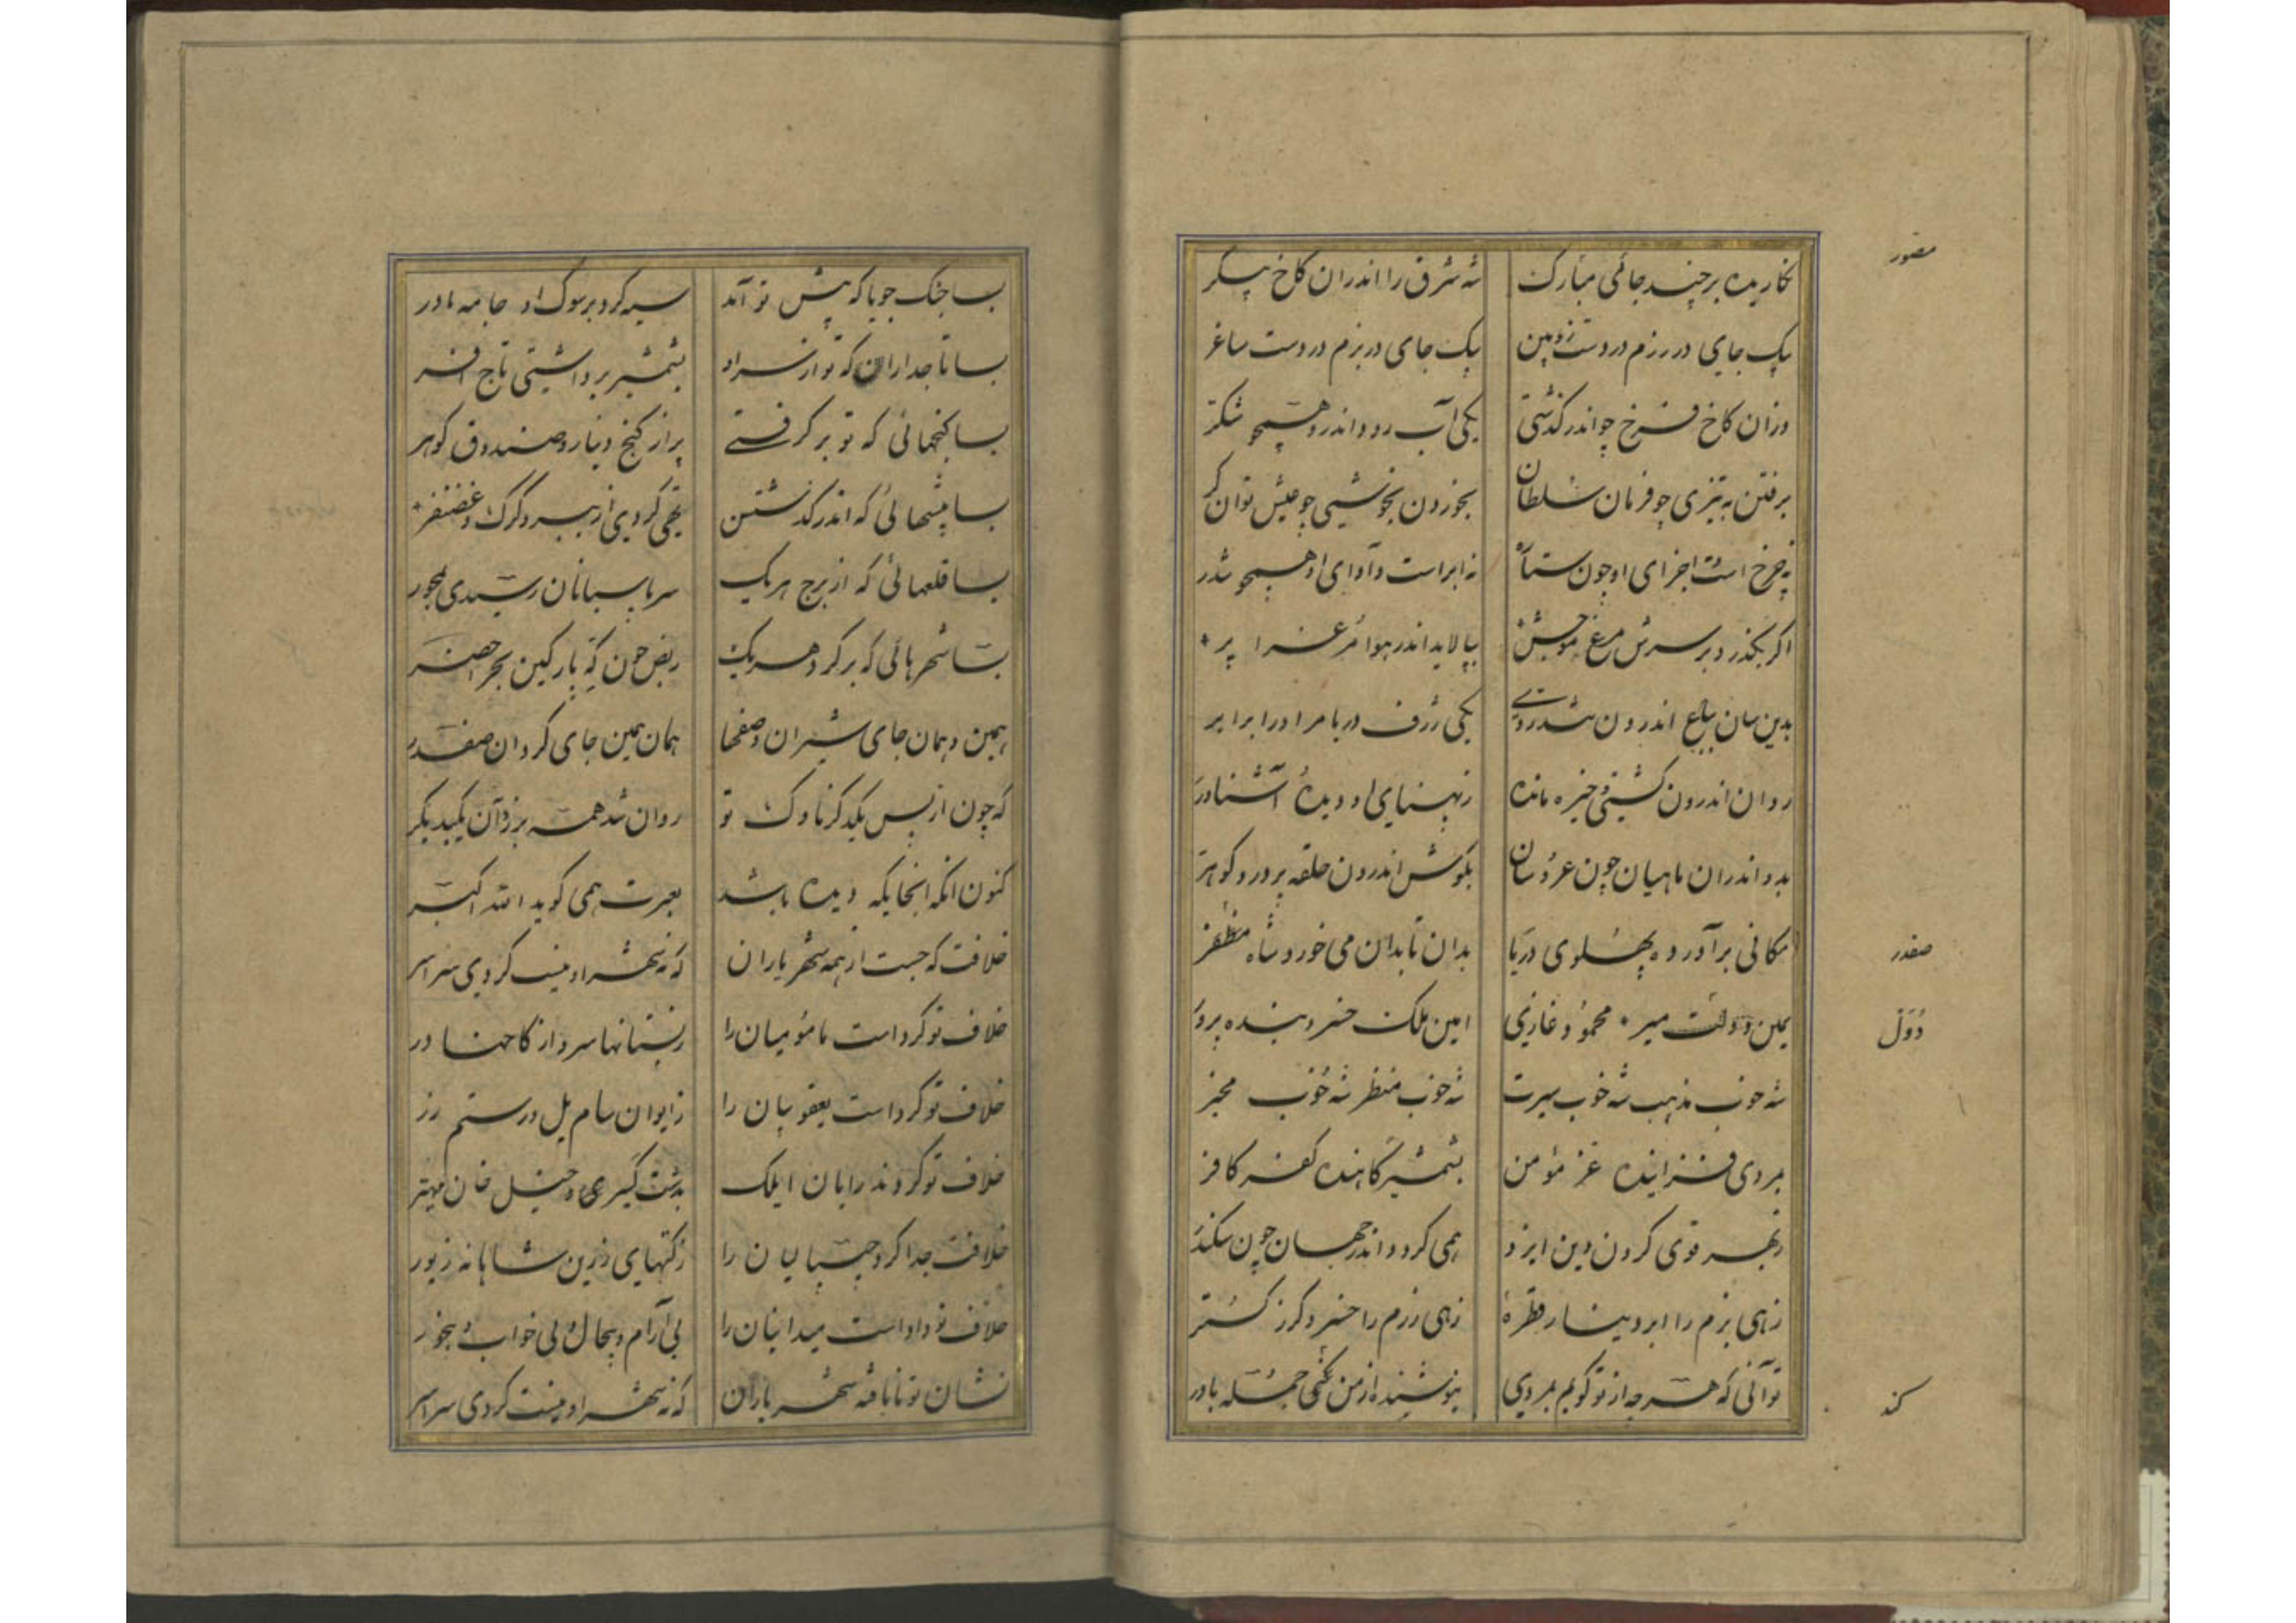 نکاریده بر چند جائی مبارک شه شرق را اندران کاخ پیکر
مصور
یک جای در رزم در دست زوبین یک جای در بزم در دست ساغر
وزان کاخ فرخ چو اندر کذشتی یکی آب رود اندرو همچو شکر
برفتن به تیزی چو فرمان سلطان بخوردن بخوشی چو عیش توانکر
نه چرخ است اجزای او چون ستاره نه ابر است و آوای او همچو تندر
اکر بکذرد بر سرش مرغ موجش بیالاید اندر هوا مرغ را پر
بدین سان بباغ اندرون یکی ژرف دریا مر او را برابر
روان اندرون کشتی و خیره مانده ز پهنای او دیدهٔ آشناور
بدو اندران ماهیان چون عروسان بکوش اندرون حلقه پر در و کوهر
مکانی برآورده پهلوی دریا بدان تا بدان می خورد شاه مظفر
صفدر
یمین دولت میر محمود غازی امین ملک خسرو بنده پرور
دول
شه خوب مذهب شه خوب سیرت شه خوب منظر شه خوب مخبر
بمردی فزاینده عز مؤمن بشمشیر کاهنده کفر کافر
ز بهر قوی کردن دین ایزد همی کردد اندر جهان چون سکندر
زهی بزم را ابر دینار قطرهٔ زهی رزم را خسرو کرز کستر
توآنی که هرچه از تو کویم بمردی نیوشنده از من جمله باور
کند
بسا جنک جویا که پیش تو آمد سیه کرد بر سوک او جامه مادر
بسا تاجداران که تو از سر او بشمشیر برداشتی تاج افسر
بسا کنجهائی که تو بر کرفتی پر از کنج دینار و صندوق کوهر
بسا بیشهائی که اندر کذشتن تهی کردی از ببر و کرک و غضنفر
بسا قلعهائی که از برج هریک سر پاسبانان رسیدی بمحور
بسا شهرهائی که بر کرد هر یک ربض چون که پارکین بحر اخضر
بهمین و همان جای شیران و صفها همان همین جای کردان صفدر
که چون از پس یکدکر ناوک تو روان شد همه یکبدیکر
کنون انکه انجایکه دیده باشد بعبرت همی کوید الله اکبر
خلافت که جست از همه شهریاران که نه شهر او نیست کردی سراسر
خلاف تو کرد است مامونیان را ز بستانها سرو از کاخها در
خلاف تو کرد است یعقوبیان را ز ایوان سام یل و رستم زر
خلاف تو کرد ایلک خان مهتر
خلافت جدا کرد جیپالیان را زکتهای زرین شاهانه زیور
خلاف تو داد است بی آرام و بیجال و بی خواب و بیخور
نشان تو نایافته شهریاران که نه شهر او نیست کردی سراسر